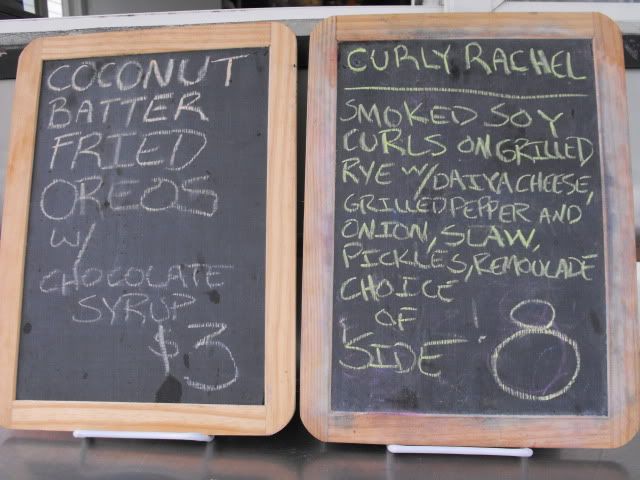 COCONUT
BATTER
FRIED
OREOS
W/
CHOCOLATE
SYRUP
$3
CURLY RACHEL
SMOKED SOY
CURLS ON GRILLED
RYE W/ DAIYA CHEESE,
GRILLED PEPPER AND
ONION, SLAW,
PICKLES, REMOULADE
CHOICE
OF
SIDE 8